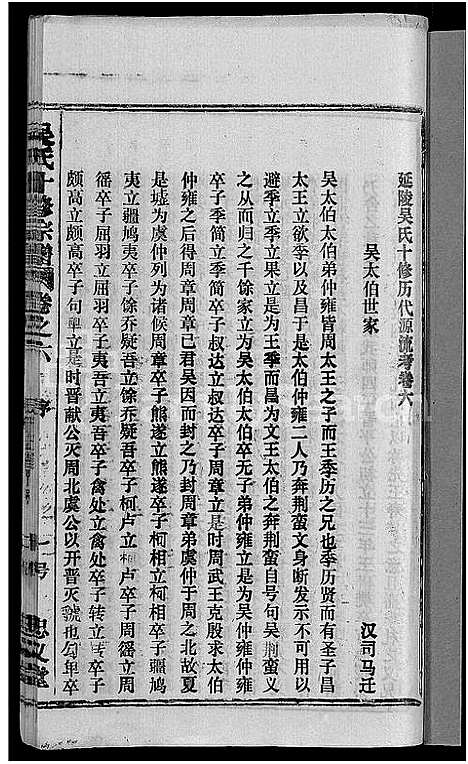 延陵吴氏十修历代源流考卷六
吴太伯世家
汉司马迁
吴太伯太伯弟仲雍皆周太王之子而王季历之兄也季历贤而有圣子昌
太王立欲季以及昌于是太伯仲雍二人乃奔荆蛮文身断发示不可用以
避季立季立果是为王季而昌为文王太伯之奔荆蛮自号句吴荆蛮义
之从而归之千馀家立为吴太伯太伯卒无子弟仲雍立是为吴仲雍仲雍
卒子季简立季简卒子叔达立叔达卒子周章立是时周武王克殷求太伯
仲雍之后得周章周章已君吴因而封之乃封章弟虞仲于周之北故夏
是墟为虞仲列为诸候周章卒子熊遂立熊遂卒子柯相立柯相卒子疆鸠
夷立疆鸠夷卒子馀乔疑吾立馀乔疑吾卒子柯卢立柯卢卒子周徭立周
徭卒子屈羽立屈羽卒子夷吾立夷吾卒子禽处立禽处卒子转立转卒子
颇高立颇高卒子句卑立是时晋献公灭周北虞公以开晋灭虢也句卑卒
吴氏十修宗谱 卷之六
号
忠义堂